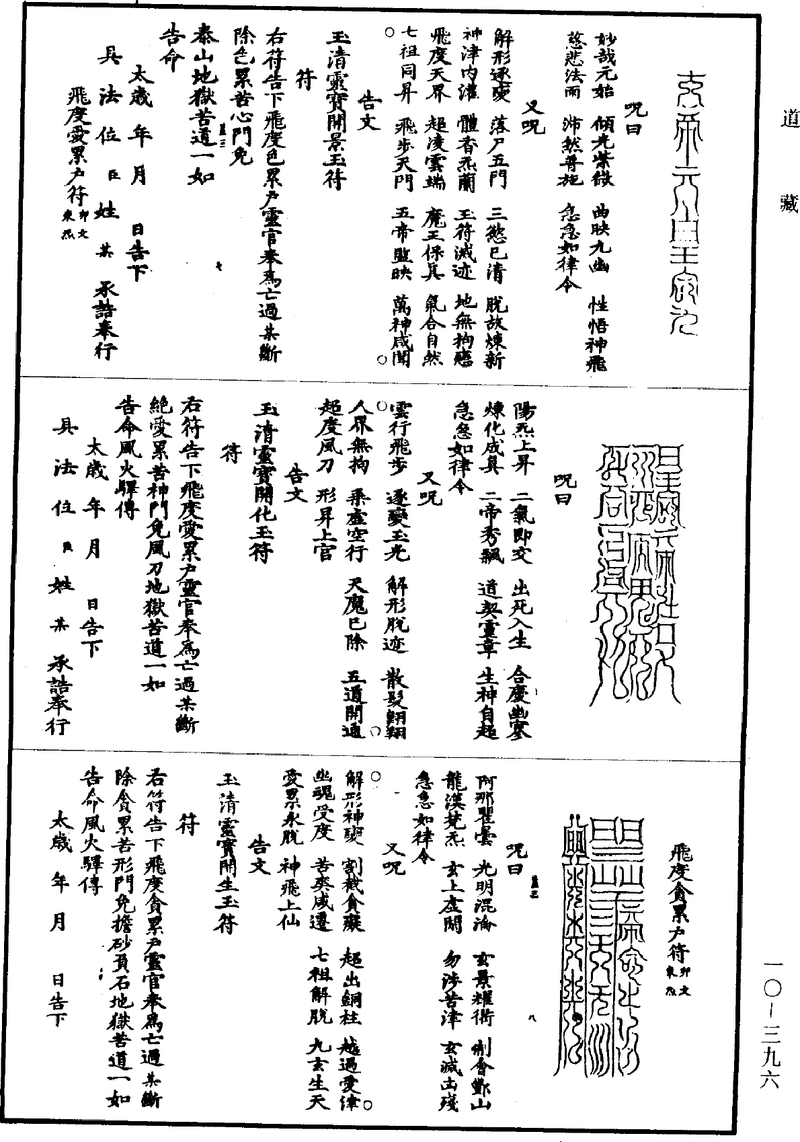 道藏
呪曰
妙哉元始　傾光紫微　曲映九幽　性悟神飛
慈悲法雨　沛然普施　急急如律令
又呪
解形逐變　落尸五門　三慾已清　脫故煉新
神津內灌　體香炁蘭　玉符滅迹　地無拘魂
飛度天界　超凌雲端　魔王保真　氣合自然
七祖同昇　飛步天門　五帝監映　萬神咸聞
告文
玉清靈寶開景玉符
符
右符告下飛度色累户靈官奉為亡過某斷
除色累苦心門免
泰山地獄苦道一如
告命
太歲　年　月　日告下
具法位臣姓某承誥奉行
飛度愛累户符
呪曰
陽炁上昇　二氣即交　出死入生　合慶幽寥
煉化成真　二帝秀飄　道契靈章　生神自超
急急如律令
又呪
雲行飛步　逐變玉光　解形脫迹　散髮翱翔
人界無拘　乘虛空行　天魔已除　五道開通
超度風刀　形昇上宮
告文
玉清靈寶開化玉符
符
右符告下飛度愛累户靈官奉為亡過某斷
絕愛累苦神門免風刀地獄苦道一如
告命風火驛傳
太歲　年　月　日告下
具法位臣姓某承誥奉行
飛度貪累户符
呪曰
阿那瞿曇　光明混淪　玄景耀衢　制會酆山
龍漢梵炁　玄上虛開　勿涉苦津　玄滅五殘
急急如律令
又呪
解形神變　割截貪癡　超出銅柱　越過愛津
幽魂受度　苦爽咸遷　七祖解脫　九玄生天
愛累永脫　神飛上仙
告文
玉清靈寶開生玉符
符
右符告下飛度貪累户靈官奉為亡過某斷
除貪累苦形門免擔砂負石地獄苦道一如
告命風火驛傳
太歲　年　月　日告下
一〇—三九六